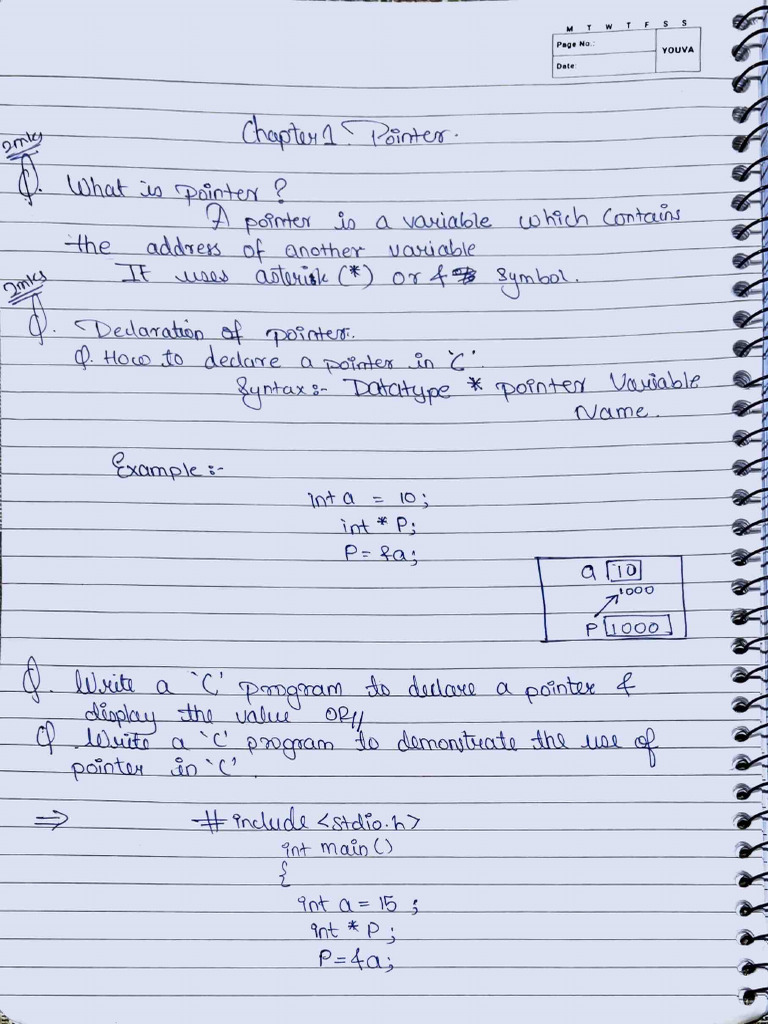 M T W T F S S
Page No.:
YOUVA
Date:
Chapter 1. Pointer.
2mks
Q. What is pointer ?
A pointer is a variable which contains
the address of another variable
It uses asterisk (*) or & symbol.
2mks
Q. Declaration of pointer.
Q. How to declare a pointer in 'C'.
Syntax :- Datatype * pointer Variable
Name.
Example :-
int a = 10 ;
int * P;
P = &a;
a 10
1000
P 1000
Q. Write a 'C' program to declare a pointer &
display the value OR//
Q Write a 'C' program to demonstrate the use of
pointer in 'C'.
⇒ # include <stdio.h>
int main()
{
int a = 15 ;
int * P ;
P = &a;